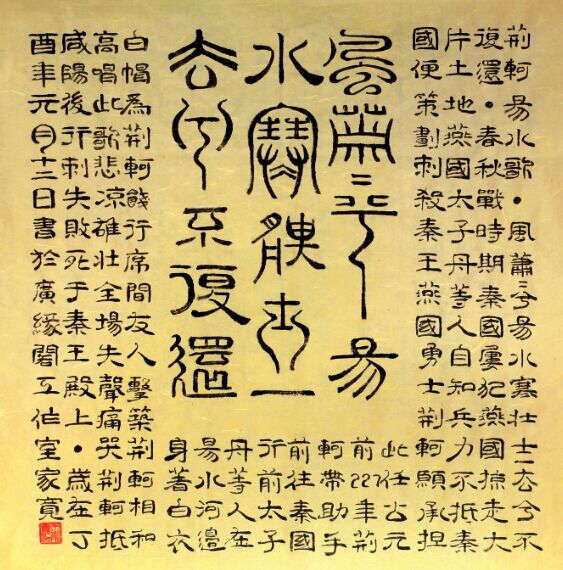 風蕭〻兮易
水寒壯士一
去兮不復還
荊軻易水歌・風蕭〻兮易水寒壯士一去兮不
復還・春秋戰時期秦國屢犯燕國掠走大
片土地燕國太子丹等人自知兵力不抵秦
國便策劃刺殺秦王燕國勇士荊軻願承担
此任公元
前227年荊
軻帶助手
前往秦國
行前太子
丹等人在
易水河邊
身著白衣
白帽為荊軻餞行席間友人擊築荊軻相和
高唱此歌悲凉雄壯全場失聲痛哭荊軻抵
咸陽後行刺失敗死于秦王殿上・歲在丁
酉年元月十二日書於廣緣閣工作室家寬